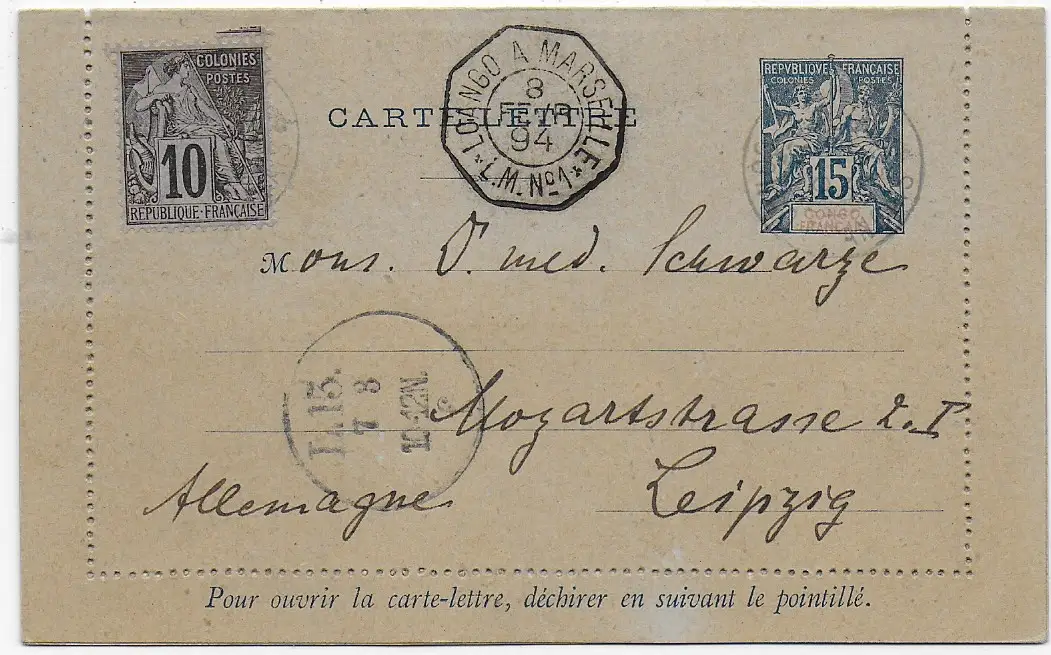 COLONIES
POSTES
10
RÉPUBLIQUE-FRANÇAISE
LOANGO A MARSEILLE
8
FEVR
94
* L.M. No 1 *
CARTE-LETTRE
REPVBLIQVE FRANÇAISE
COLONIES POSTES
15
CONGO
FRANÇAIS
Mons. D. med. Schwarze
L.13.
7 3
10-12N.
Mozartstrasse 2.I
Allemagne Leipzig
Pour ouvrir la carte-lettre, déchirer en suivant le pointillé.